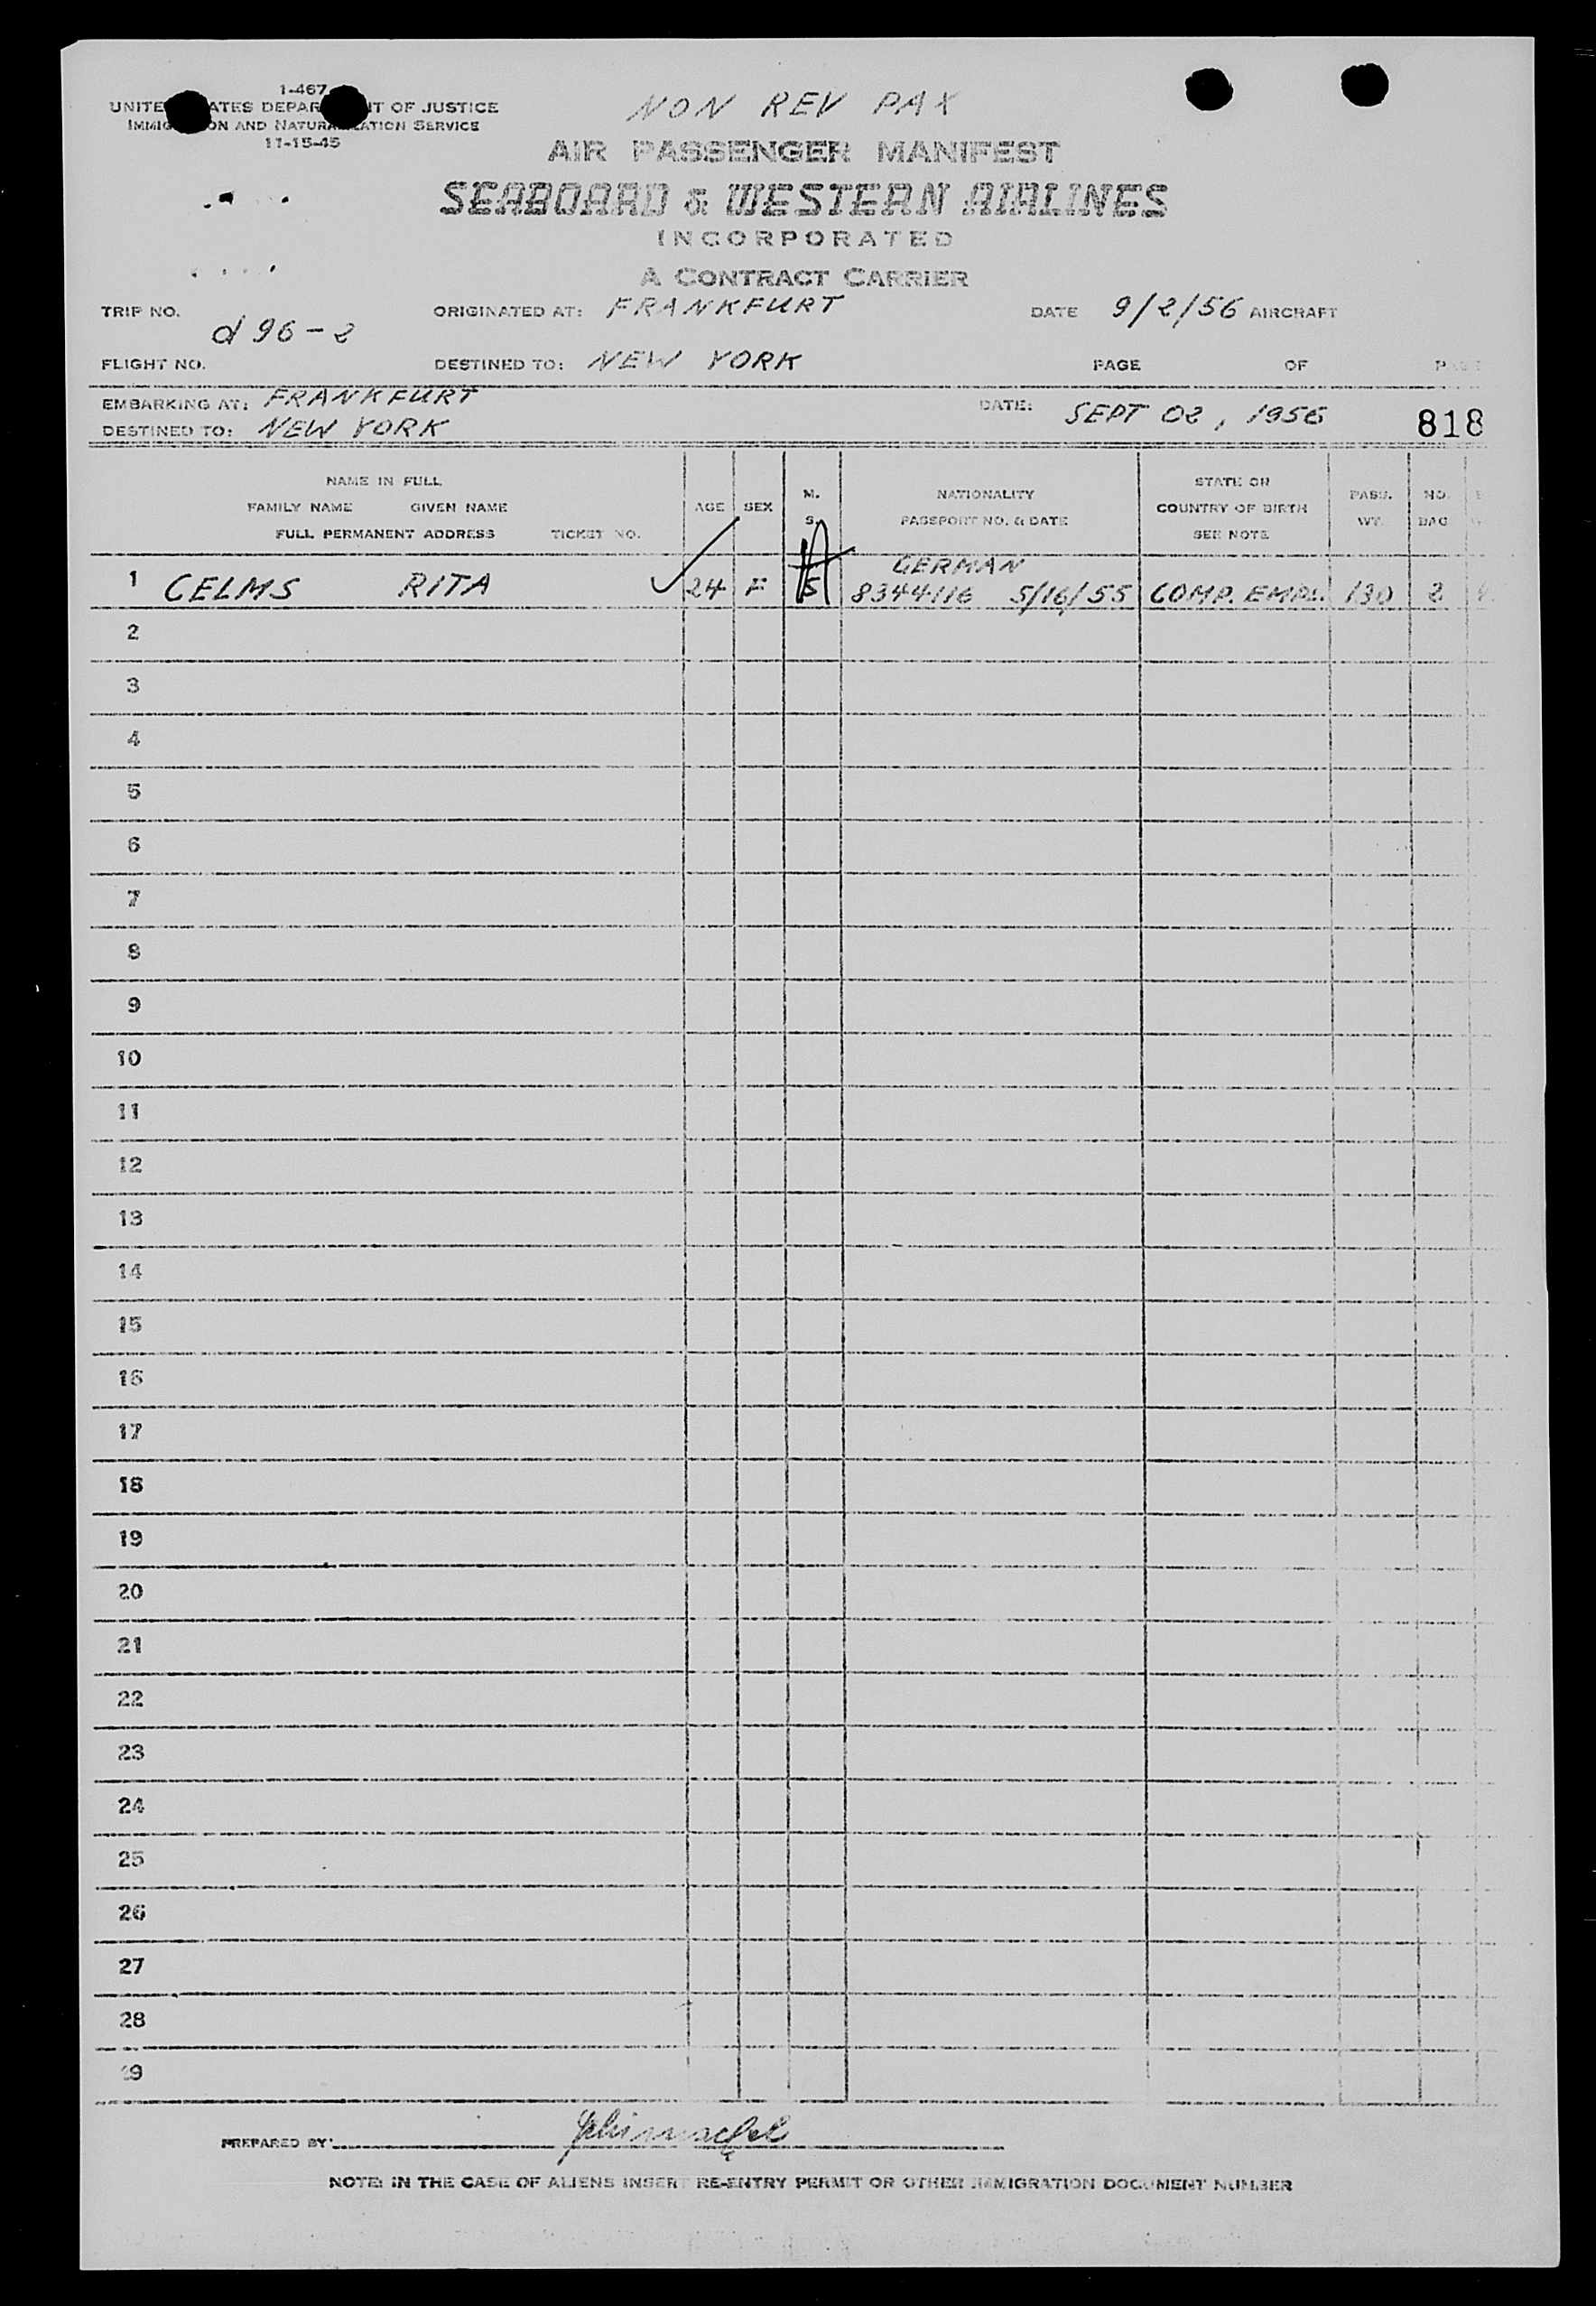 1-467
UNITED STATES DEPARTMENT OF JUSTICE
IMMIGRATION AND NATURALIZATION SERVICE
11-15-45
NON REV PAX
AIR PASSENGER MANIFEST
SEABOARD & WESTERN AIRLINES
INCORPORATED
A CONTRACT CARRIER
TRIP NO. d96-2 ORIGINATED AT: FRANKFURT DATE 9/2/56 AIRCRAFT
FLIGHT NO. DESTINED TO: NEW YORK PAGE OF
EMBARKING AT: FRANKFURT DATE: SEPT 02, 1956 818
DESTINED TO: NEW YORK
NAME IN FULL
FAMILY NAME GIVEN NAME
FULL PERMANENT ADDRESS TICKET NO.
AGE SEX M. S.
NATIONALITY
PASSPORT NO. & DATE
STATE OR
COUNTRY OF BIRTH
SEE NOTE
PASS. WT. NO. BAG
GERMAN
1 CELMS RITA 24 F S 8344116 5/16/55 COMP. EMPL. 130 2
2
3
4
5
6
7
8
9
10
11
12
13
14
15
16
17
18
19
20
21
22
23
24
25
26
27
28
29
PREPARED BY:
NOTE: IN THE CASE OF ALIENS INSERT RE-ENTRY PERMIT OR OTHER IMMIGRATION DOCUMENT NUMBER